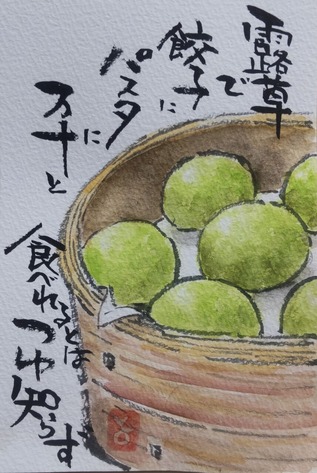 露草で
餃子に
パスタに
万十と
食べれるとは
つゆ知らず